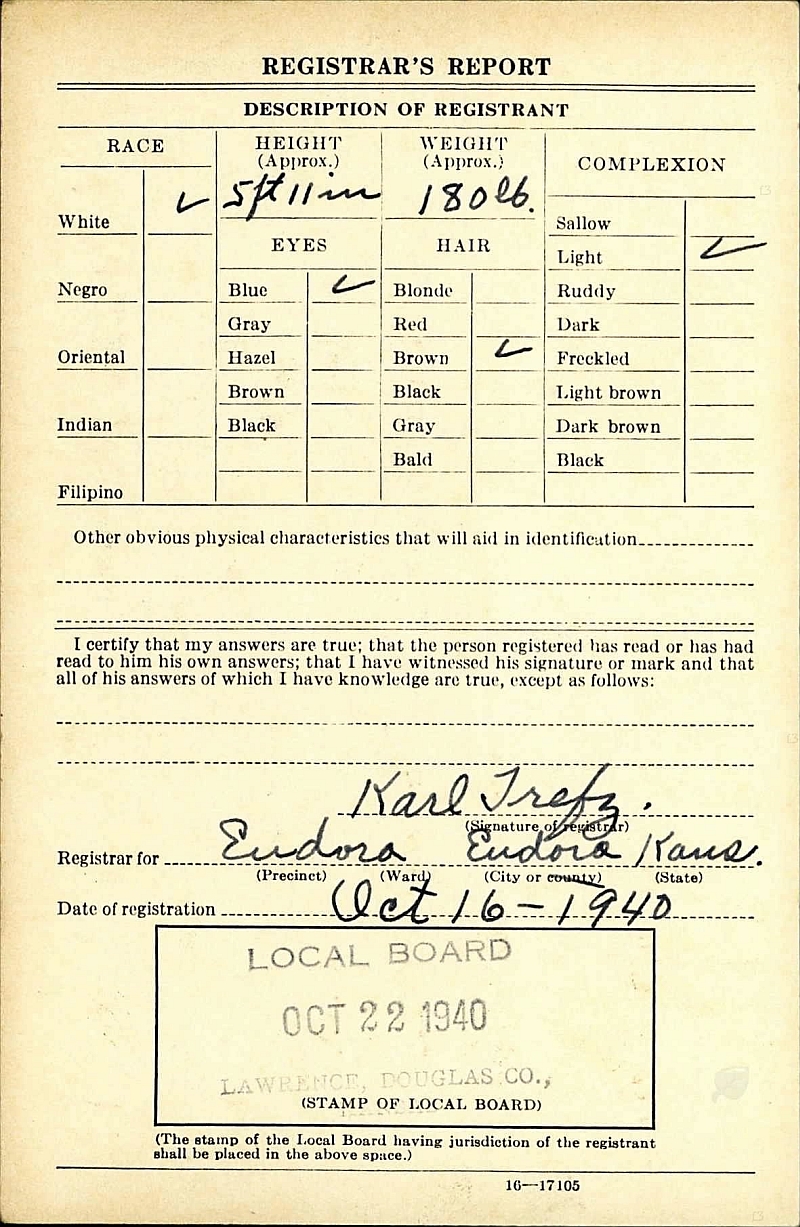 REGISTRAR'S REPORT
DESCRIPTION OF REGISTRANT
RACE
HEIGHT
(Approx.)
WEIGHT
(Approx.)
COMPLEXION
White ✓
5ft 11 in
180 lb.
Sallow
EYES
HAIR
Light ✓
Negro
Blue ✓
Blonde
Ruddy
Gray
Red
Dark
Oriental
Hazel
Brown ✓
Freckled
Brown
Black
Light brown
Indian
Black
Gray
Dark brown
Bald
Black
Filipino
Other obvious physical characteristics that will aid in identification
I certify that my answers are true; that the person registered has read or has had
read to him his own answers; that I have witnessed his signature or mark and that
all of his answers of which I have knowledge are true, except as follows:
Karl Trefz.
(Signature of registrar)
Registrar for Eudora Eudora Kans.
(Precinct) (Ward) (City or county) (State)
Date of registration Oct 16-1940
LOCAL BOARD
OCT 22 1940
LAWRENCE, DOUGLAS CO.,
(STAMP OF LOCAL BOARD)
(The stamp of the Local Board having jurisdiction of the registrant
shall be placed in the above space.)
16—17105